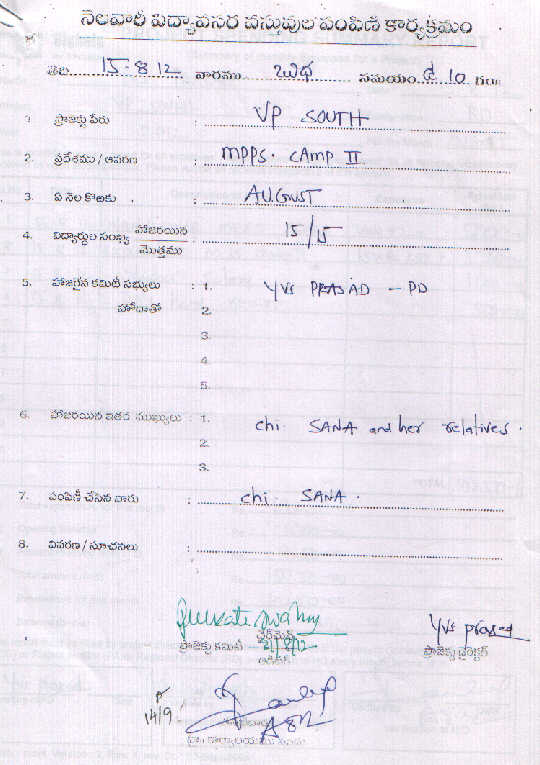 నెలవారీ విద్యావసర వస్తువుల పంపిణీ కార్యక్రమం
తేది 15-8-12 వారము బుధ సమయం ఉ 10 గం
1. ప్రాజెక్టు పేరు : VP SOUTH
2. ప్రదేశము / ఆవరణ : MPPS. CAMP II
3. ఏ నెల కొఱకు : AUGUST
4. విద్యార్థుల సంఖ్య హాజరయిన / మొత్తము : 15/15
5. హాజరైన కమిటీ సభ్యులు : 1. YVS PRASAD - PD
హోదాతో 2.
3.
4.
5.
6. హాజరయిన ఇతర ముఖ్యులు : 1. chi. SANA and her relatives.
2.
3.
7. పంపిణీ చేసిన వారు : chi. SANA.
8. వివరణ / సూచనలు :
చైర్మెన్
ప్రాజెక్టు కమిటీ 21/8/12
YVS prasad
ప్రాజెక్టు డైరెక్టర్
14/9